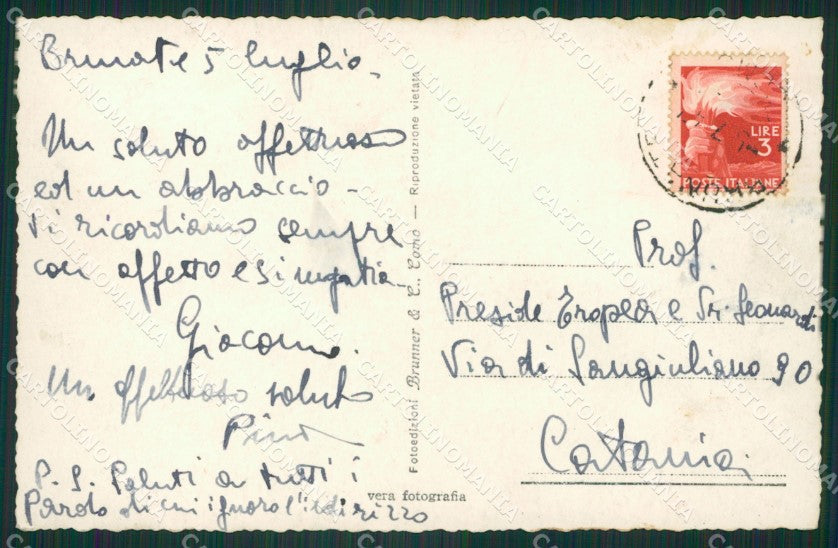 Brunate 5 luglio -
Un saluto affettuoso
ed un abbraccio -
Vi ricordiamo sempre
con affetto e simpatia
Giacomo.
Un affettuoso saluto
P.S. Saluti a tutti i
Pardo di cui ignoro l'indirizzo
Fotoedizioni Brunner & C., Como — Riproduzione vietata
vera fotografia
LIRE
3
POSTE ITALIANE
Prof.
Preside Eropea e Sr. Leonardi
Via di Sangiuliano 90
Catania
CARTOLINOMANIA